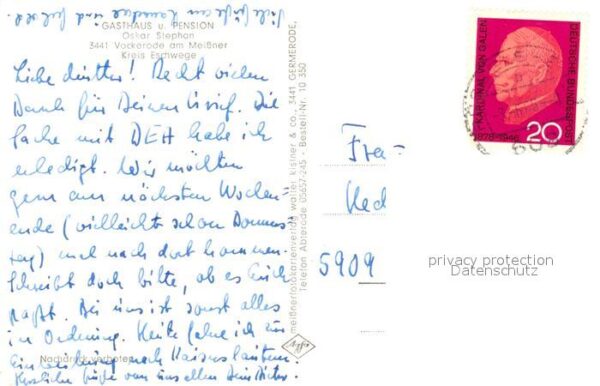 Viele Grüße an und
GASTHAUS u. PENSION
Oskar Stephan
3441 Vockerode am Meißner
Kreis Eschwege
Liebe Mutter! Recht vielen
Dank für Deinen Brief. Die
Sache mit DEH habe ich
erledigt. Wir möchten
gern am nächsten Wochen-
ende (vielleicht schon Donners-
tag) mal nach dort kommen.
Schreibt doch bitte, ob es Euch
paßt. Bei uns ist sonst alles
in Ordnung. Heute fahre ich zu
Nachdruck verboten
nach Kaiserslautern.
Herzliche Grüße von uns allen Dein Dieter.
meißnerfotokartenverlag walter kisner & co. 3441 GERMERODE,
Telefon Abterode 05657-245 - Bestell-Nr. 10 350
Agfa
Frau
5909
KARDINAL VON GALEN
DEUTSCHE BUNDESPOST
1878-1946
20
privacy protection
Datenschutz